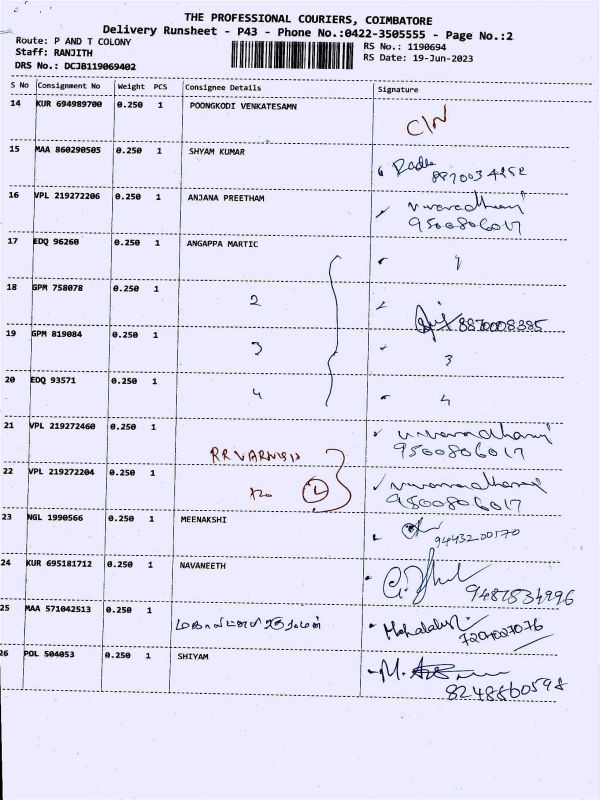 THE PROFESSIONAL COURIERS, COIMBATORE
Delivery Runsheet - P43 - Phone No.:0422-3505555 - Page No.:2
Route: P AND T COLONY
Staff: RANJITH
DRS No.: DCJB119069402
RS No.: 1190694
RS Date: 19-Jun-2023
S No Consignment No Weight PCS Consignee Details Signature
14 KUR 694989700 0.250 1 POONGKODI VENKATESAMN
15 MAA 860290505 0.250 1 SHYAM KUMAR
16 VPL 219272206 0.250 1 ANJANA PREETHAM
9500806017
17 EDQ 96260 0.250 1 ANGAPPA MARTIC
18 GPM 758078 0.250 1 2
8870008385
19 GPM 819084 0.250 1 3 3
20 EDQ 93571 0.250 1 4 4
21 VPL 219272460 0.250 1
9500806017
22 VPL 219272204 0.250 1
9500806017
23 NGL 1990566 0.250 1 MEENAKSHI
24 KUR 695181712 0.250 1 NAVANEETH
25 MAA 571042513 0.250 1
26 POL 504053 0.250 1 SHIYAM